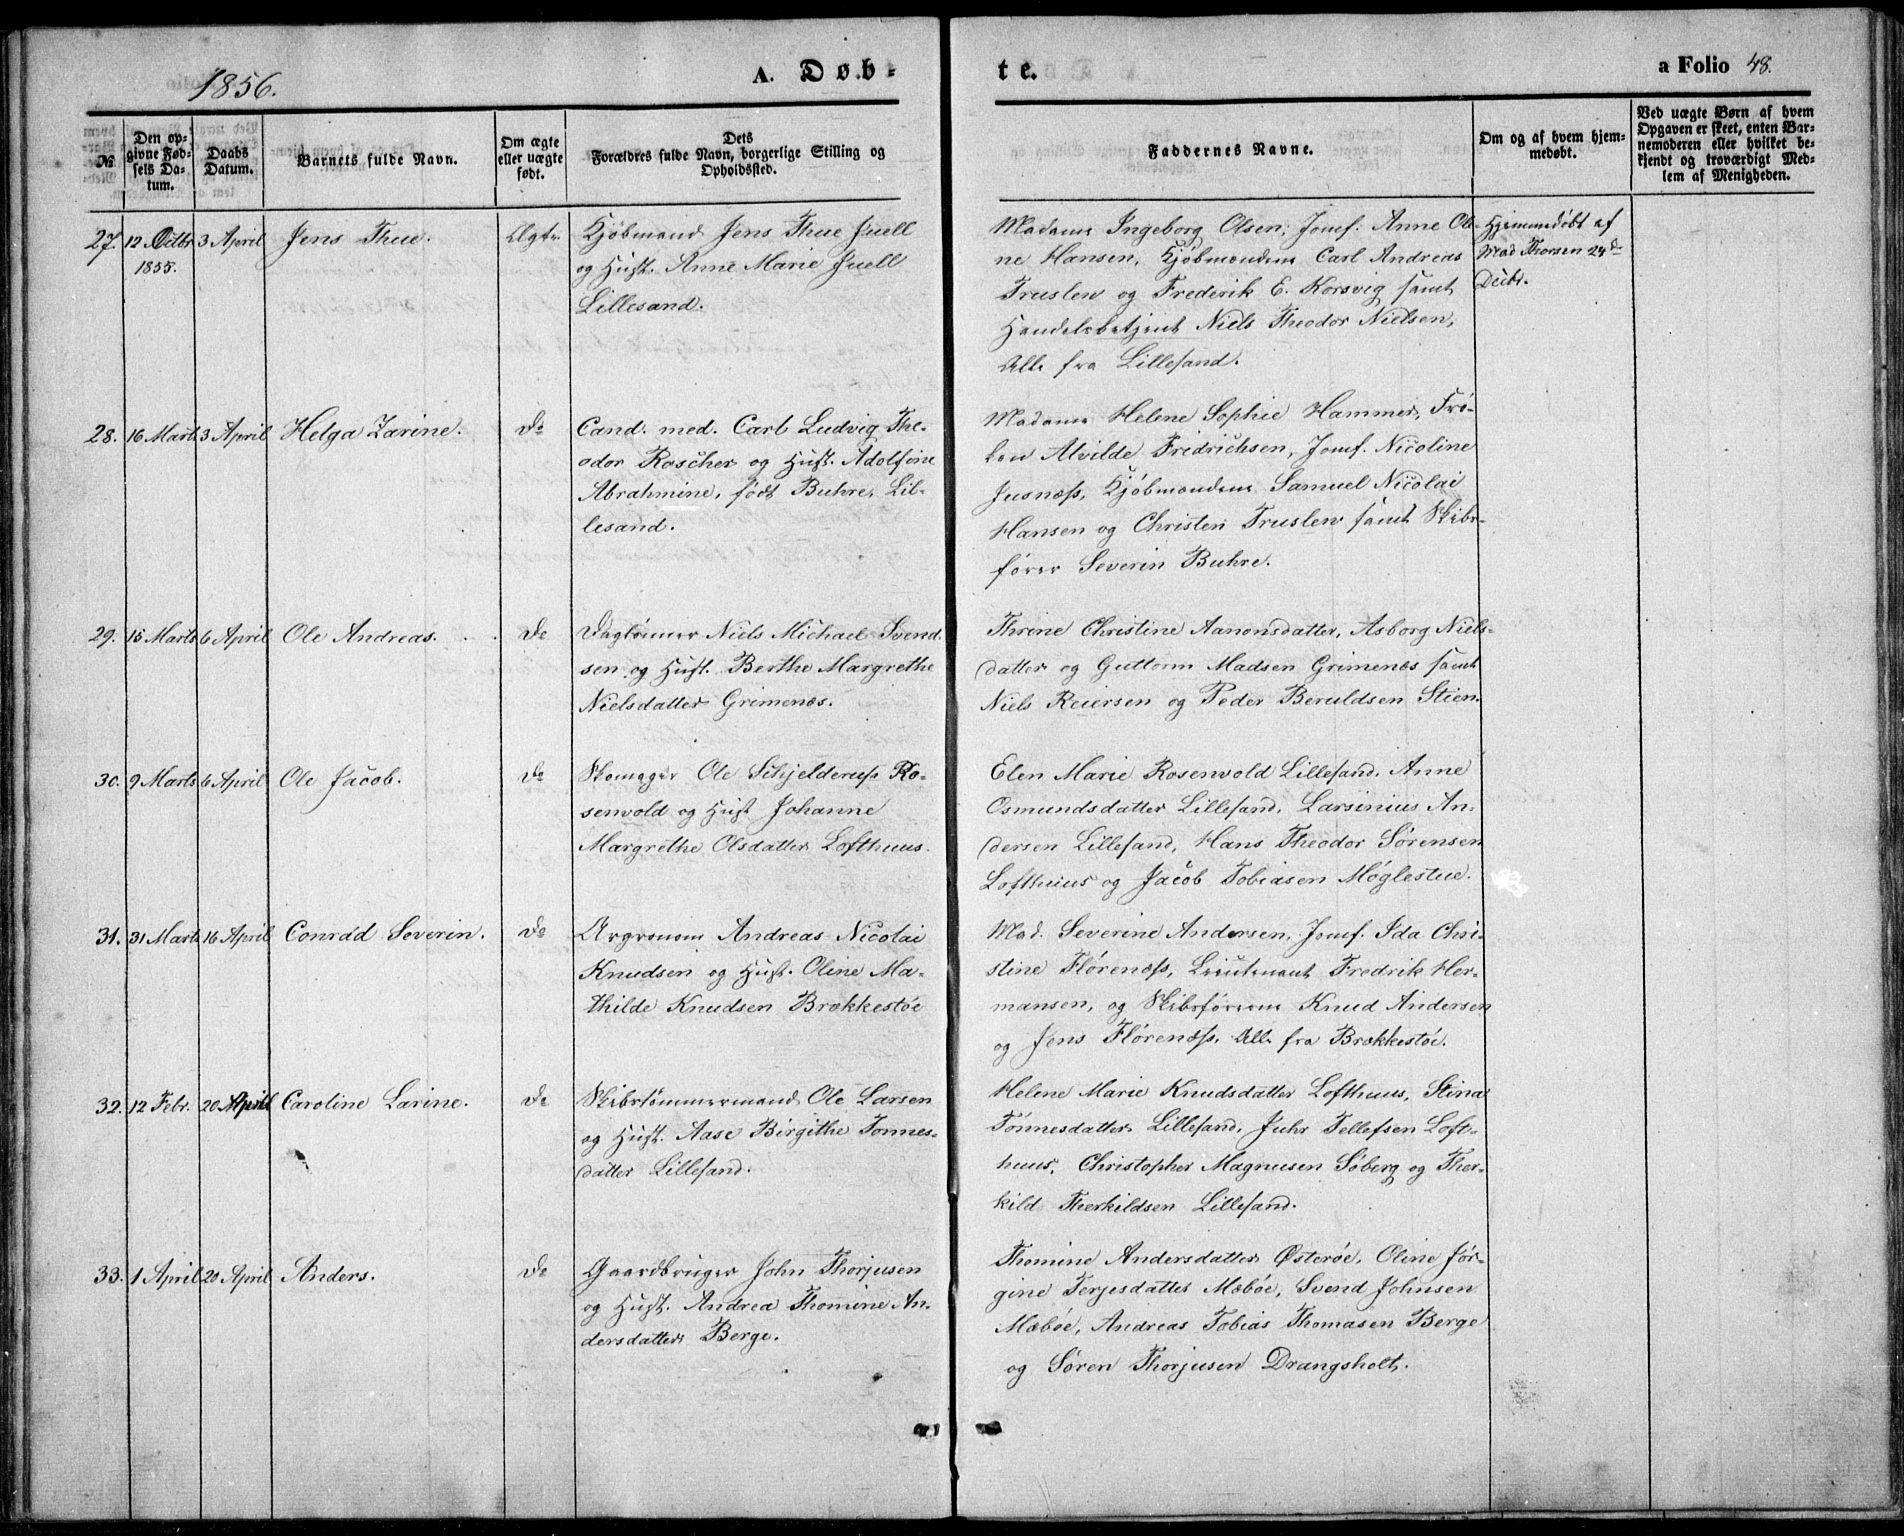 1856.
A. Døb-
te.
a Folio 48.
№
Den op-
givne Fød-
sels Da-
tum.
Daabs
Datum.
Barnets fulde Navn.
Om ægte
eller uægte
født.
Dets
Forældres fulde Navn, borgerlige Stilling og
Opholdssted.
Faddernes Navne.
Om og af hvem hjem-
medøbt.
Ved uægte Børn af hvem
Opgaven er skeet, enten Bar-
nemoderen eller hvilket be-
kjendt og troværdigt Med-
lem af Menigheden.
27. 12 Octbr 1855. 3 April Jens Thue. Ægte.
Kjøbmand Jens Thue Juell
og Hust. Anne Marie Juell
Lillesand.
Madame Ingeborg Olsen, Jomf. Anne Ole-
ne Hansen, Kjøbmændene Carl Andreas
Truslew og Frederik E. Korsvig samt
Handelsbetjent Niels Theodor Nielsen,
Alle fra Lillesand.
Hjemmedøbt af
Mad Thorsen 24d
Decbr.
28. 16 Marts 3 April Helga Zarine. Do
Cand. med. Carl Ludvig The-
odor Roscher og Hust. Adolfine
Abrahmine, født Buhre, Lil-
lesand.
Madame Helene Sophie Hammer, Frø-
ken Alvilde Fridrichsen, Jomf. Nicoline
Jusnæss, Kjøbmændene Samuel Nicolai
Hansen og Christen Truslew samt Skibs-
fører Severin Buhre.
29. 15 Marts 6 April Ole Andreas. Do
Daglønner Niels Michael Svend
sen og Hust. Berthe Margrethe
Nielsdatter Grimenæs.
Thrine Christine Aanonsdatter, Asborg Niels-
datter og Guttorm Madsen Grimenæs samt
Niels Reiersen og Peder Beruldsen Stien.
30. 9 Marts 6 April Ole Jacob. Do
Skomager Ole Schjelderup Ro-
senvold og Hust Johanne
Margrethe Olsdatter Lofthuus.
Elen Marie Rosenvold Lillesand, Anne
Osmundsdatter Lillesand, Larsinius An-
dersen Lillesand, Hans Theodor Sørensen
Lofthuus og Jacob Tobiasen Møglestue.
31. 31 Marts 16 April Conrad Severin. Do
Argronom Andreas Nicolai
Knudsen og Hust. Oline Ma-
thilde Knudsen Brækkestøe
Mad. Severine Andersen, Jomf. Ida Chri-
stine Flørenæss, Lieutenant Fredrik Her-
mansen, og Skibsførerne Knud Andersen
og Jens Flørenæss. Alle fra Brækkestøe.
32. 12 Febr. 20 April Caroline Larine. Do
Skibstømmermand Ole Larsen
og Hust. Aase Birgithe Tønnes-
datter Lillesand.
Helene Marie Knudsdatter Lofthuus, Stina
Tønnesdatter Lillesand, Juhr Tellefsen Loft-
huus, Christopher Magnusen Søberg og Ther-
kild Therkildsen Lillesand.
33. 1 April 20 April Anders. Do
Gaardbruger John Thorjusen
og Hust. Andrea Thomine An-
dersdatter Berge.
Thomine Andersdatter Østerøe, Oline Jør-
gine Terjesdatter Mæbøe, Svend Johnsen
Mæbøe, Andreas Tobias Thomasen Berge
og Søren Thorjusen Drangsholt.